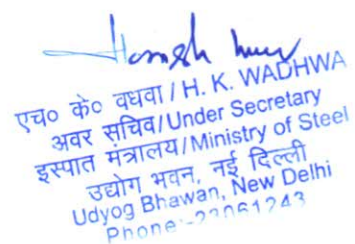 एच० के० वधवा / H. K. WADHWA
अवर सचिव/Under Secretary
इस्पात मंत्रालय/Ministry of Steel
उद्योग भवन, नई दिल्ली
Udyog Bhawan, New Delhi
Phone:-23061243